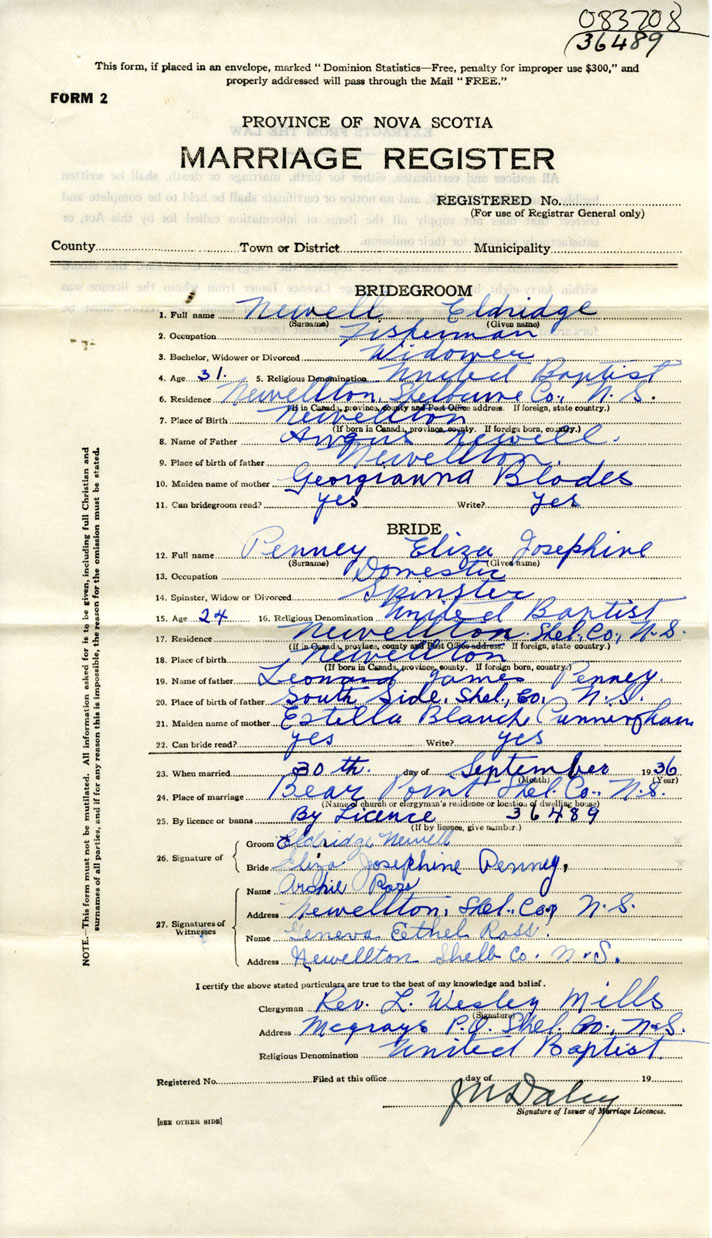 083708
(36489
This form, if placed in an envelope, marked "Dominion Statistics—Free, penalty for improper use $300," and
properly addressed will pass through the Mail "FREE."
FORM 2
PROVINCE OF NOVA SCOTIA
MARRIAGE REGISTER
REGISTERED No.
(For use of Registrar General only)
County Town or District Municipality
BRIDEGROOM
1. Full name Newell Eldridge
(Surname) (Given name)
2. Occupation Fisherman
3. Bachelor, Widower or Divorced Widower
4. Age 31. 5. Religious Denomination United Baptist
6. Residence Newellton, Shelburne Co., N. S.
(If in Canada, province, county and Post Office address. If foreign, state country.)
7. Place of Birth Newellton
(If born in Canada, province, county. If foreign born, country.)
8. Name of Father Angus Newell.
9. Place of birth of father Newellton.
10. Maiden name of mother Georgianna Blades
11. Can bridegroom read? yes Write? yes
BRIDE
12. Full name Penney Eliza Josephine
(Surname) (Given name)
13. Occupation Domestic
14. Spinster, Widow or Divorced Spinster
15. Age 24 16. Religious Denomination United Baptist
17. Residence Newellton Shel. Co., N. S.
(If in Canada, province, county and Post Office address. If foreign, state country.)
18. Place of birth Newellton
(If born in Canada, province, county. If foreign born, country.)
19. Name of father Leonard James Penney.
20. Place of birth of father South Side, Shel, Co, N. S.
21. Maiden name of mother Estella Blanch Cunningham
22. Can bride read? yes Write? yes
23. When married 30th. day of September 1936
(Month) (Year)
24. Place of marriage Bear Point Shel. Co., N. S.
(Name of church or clergyman's residence or location of dwelling house)
25. By licence or banns By Licence 36489
(If by licence, give number.)
26. Signature of Groom Eldridge Newell
Bride Eliza Josephine Penney,
27. Signatures of Witnesses Name Archie Ross
Address Newellton, Shel. Co., N. S.
Name Geneva Eethel Ross.
Address Newellton Shelb Co. N. S.
I certify the above stated particulars are true to the best of my knowledge and belief.
Clergyman Rev. L. Wesley Mills
(Signature)
Address Mcgrays P.O. Shel. Co., N. S.
Religious Denomination United Baptist.
Registered No. Filed at this office day of 19
Signature of Issuer of Marriage Licences.
[SEE OTHER SIDE]
NOTE.—This form must not be mutilated. All information asked for is to be given, including full Christian and
surnames of all parties, and if for any reason this is impossible, the reason for the omission must be stated.